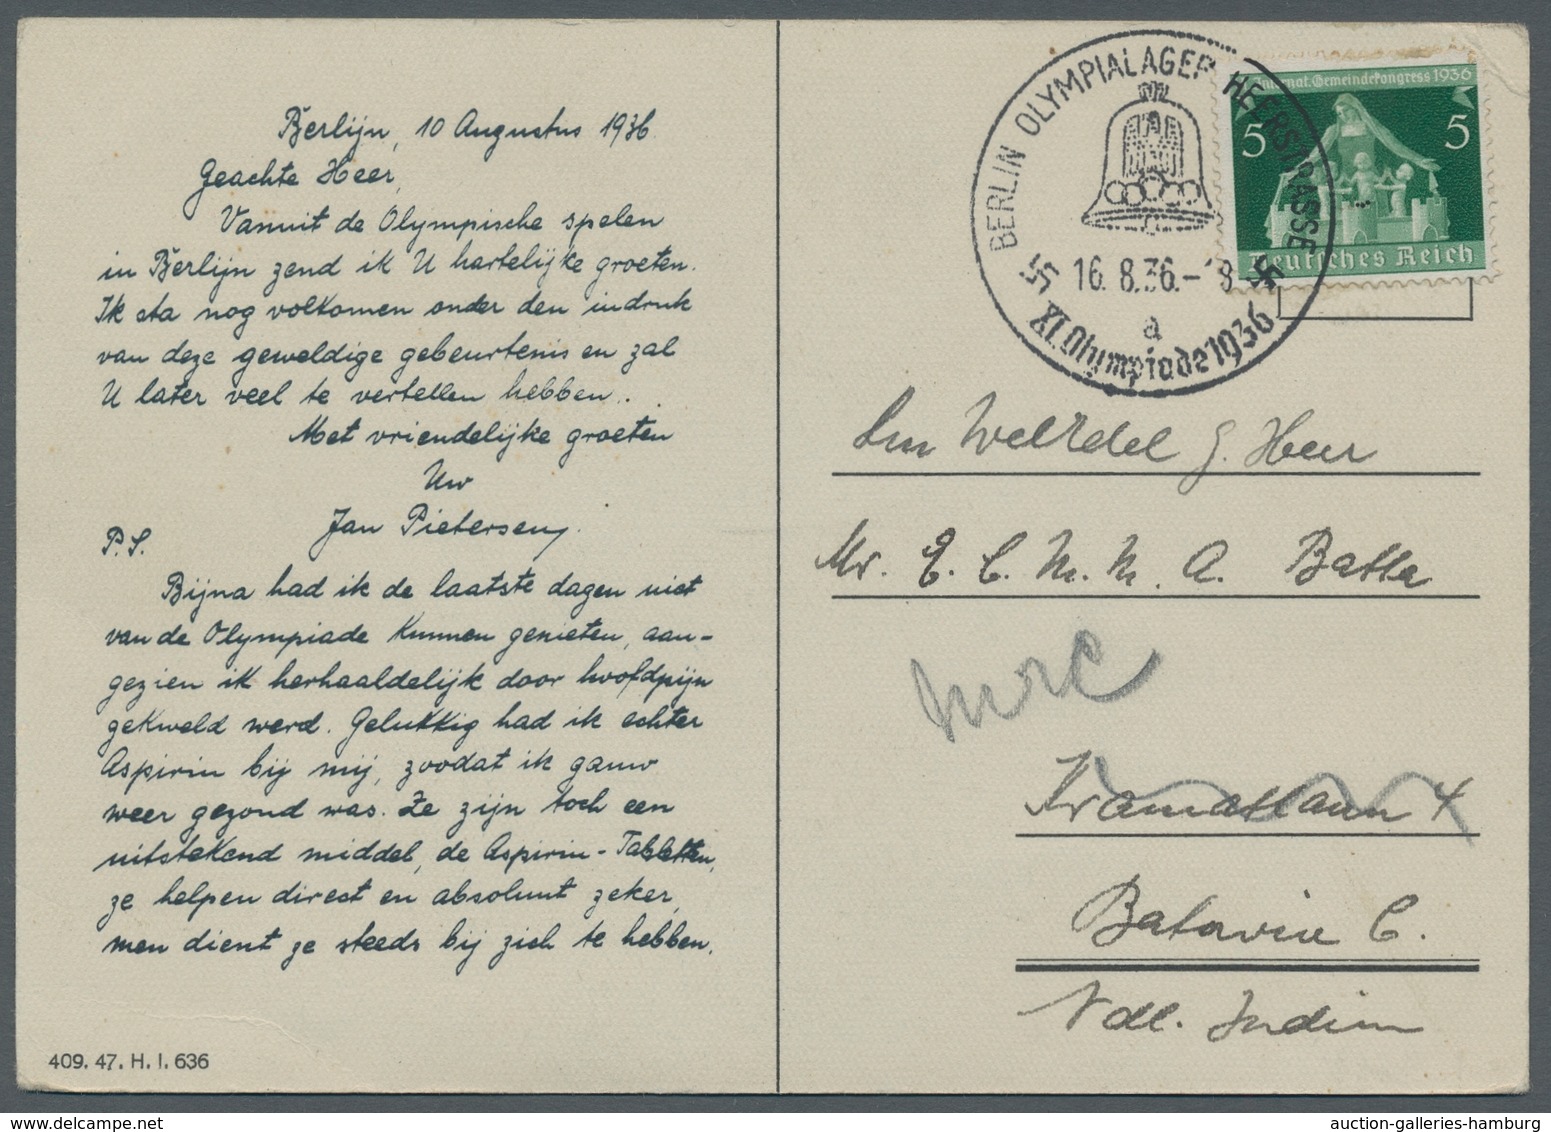 Berlijn, 10 Augustus 1936.
Geachte Heer,
Vanuit de Olympische spelen
in Berlijn zend ik U hartelijke groeten.
Ik sta nog volkomen onder den indruk
van deze geweldige gebeurtenis en zal
U later veel te vertellen hebben.
Met vriendelijke groeten
Uw
Jan Pietersen
P.S.
Bijna had ik de laatste dagen niet
van de Olympiade kunnen genieten, aan-
gezien ik herhaaldelijk door hoofdpijn
gekweld werd. Gelukkig had ik echter
Aspirin bij mij, zoodat ik gauw
weer gezond was. Ze zijn toch een
uitstekend middel, de Aspirin-Tabletten,
ze helpen direct en absoluut zeker,
men dient ze steeds bij zich te hebben.
409. 47. H. I. 636
BERLIN OLYMPIALAGER HEERSTRASSE
16. 8.36.- 8
a
XI. Olympiade 1936
Internat. Gemeindekongress 1936
5 5
Deutsches Reich
Heer
Mr. E. C. M. M. A. Batta
Batavia C.
Ndl. Indien
auction-galleries-hamburg